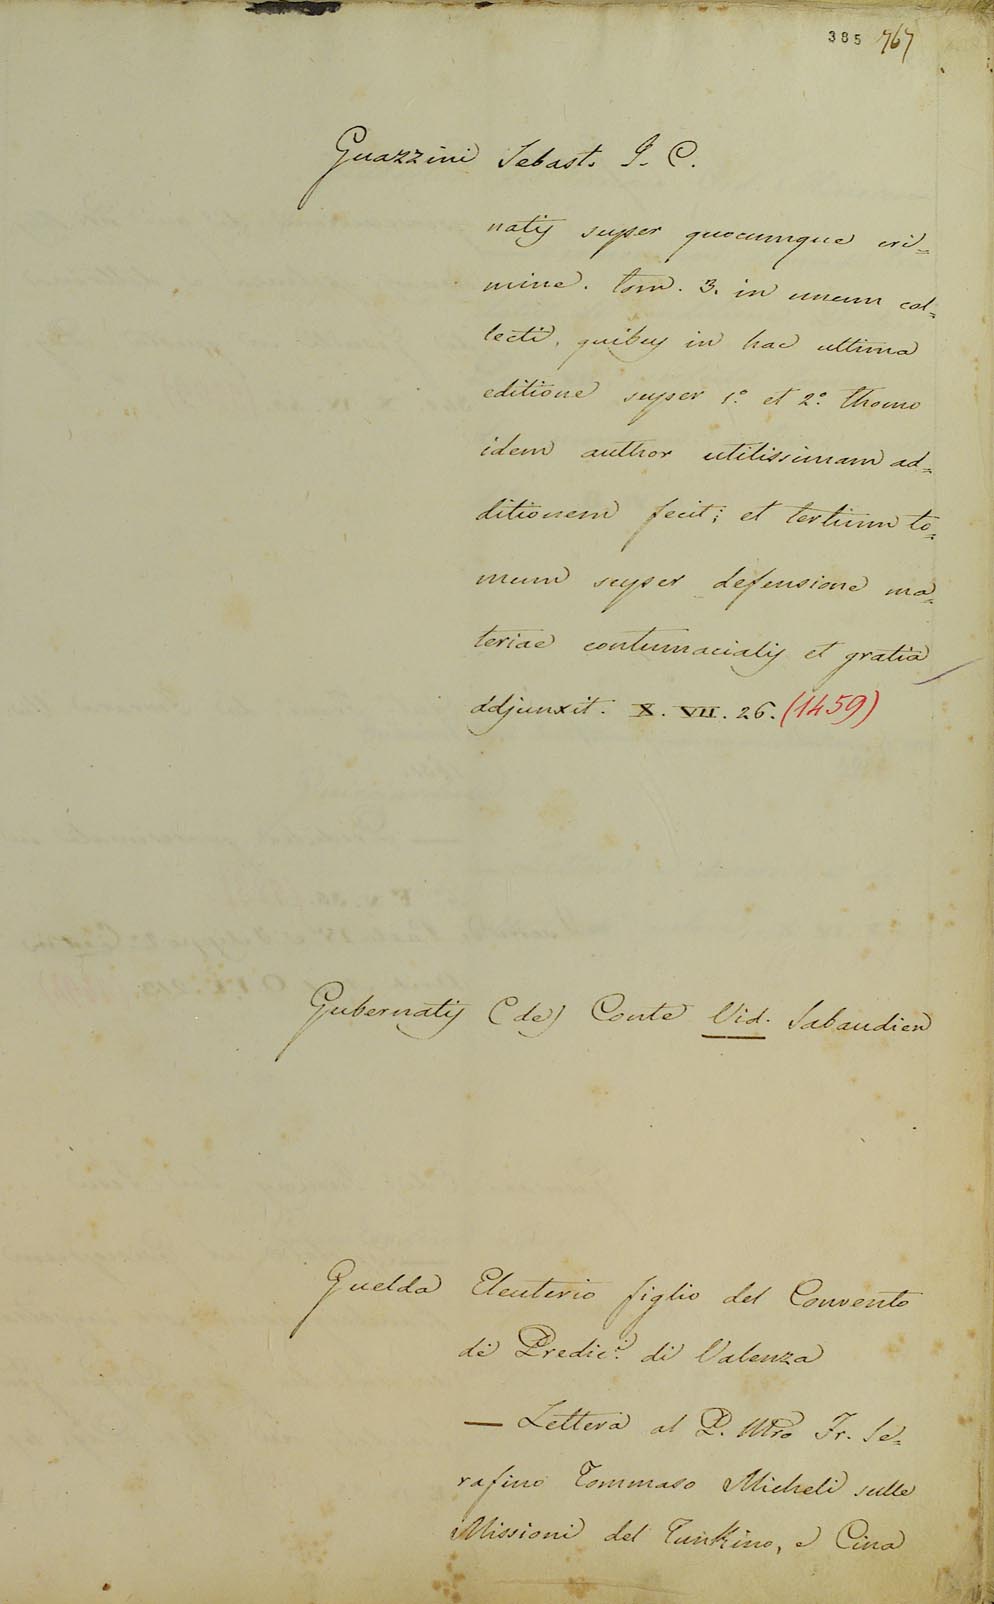 385 767
Guazzini Sebast. J. C.
natis super quocumque cri=
mine. tom. 3. in unum col=
lecti, quibus in hac ultima
editione super 1.º et 2.º thomo
idem author utilissimam ad=
ditionem fecit; et tertium to=
mum super defensione ma=
teriae contumacialis et gratia
adjunxit. X. VII. 26. (1459)
Gubernatis (de) Conte Vid. Sabaudien
Guelda Eleuterio figlio del Convento
dè Predic.i di Valenza
— Lettera al P. Mro Fr. Se=
rafino Tommaso Micheli sulle
Missioni del Tunkino, e Cina